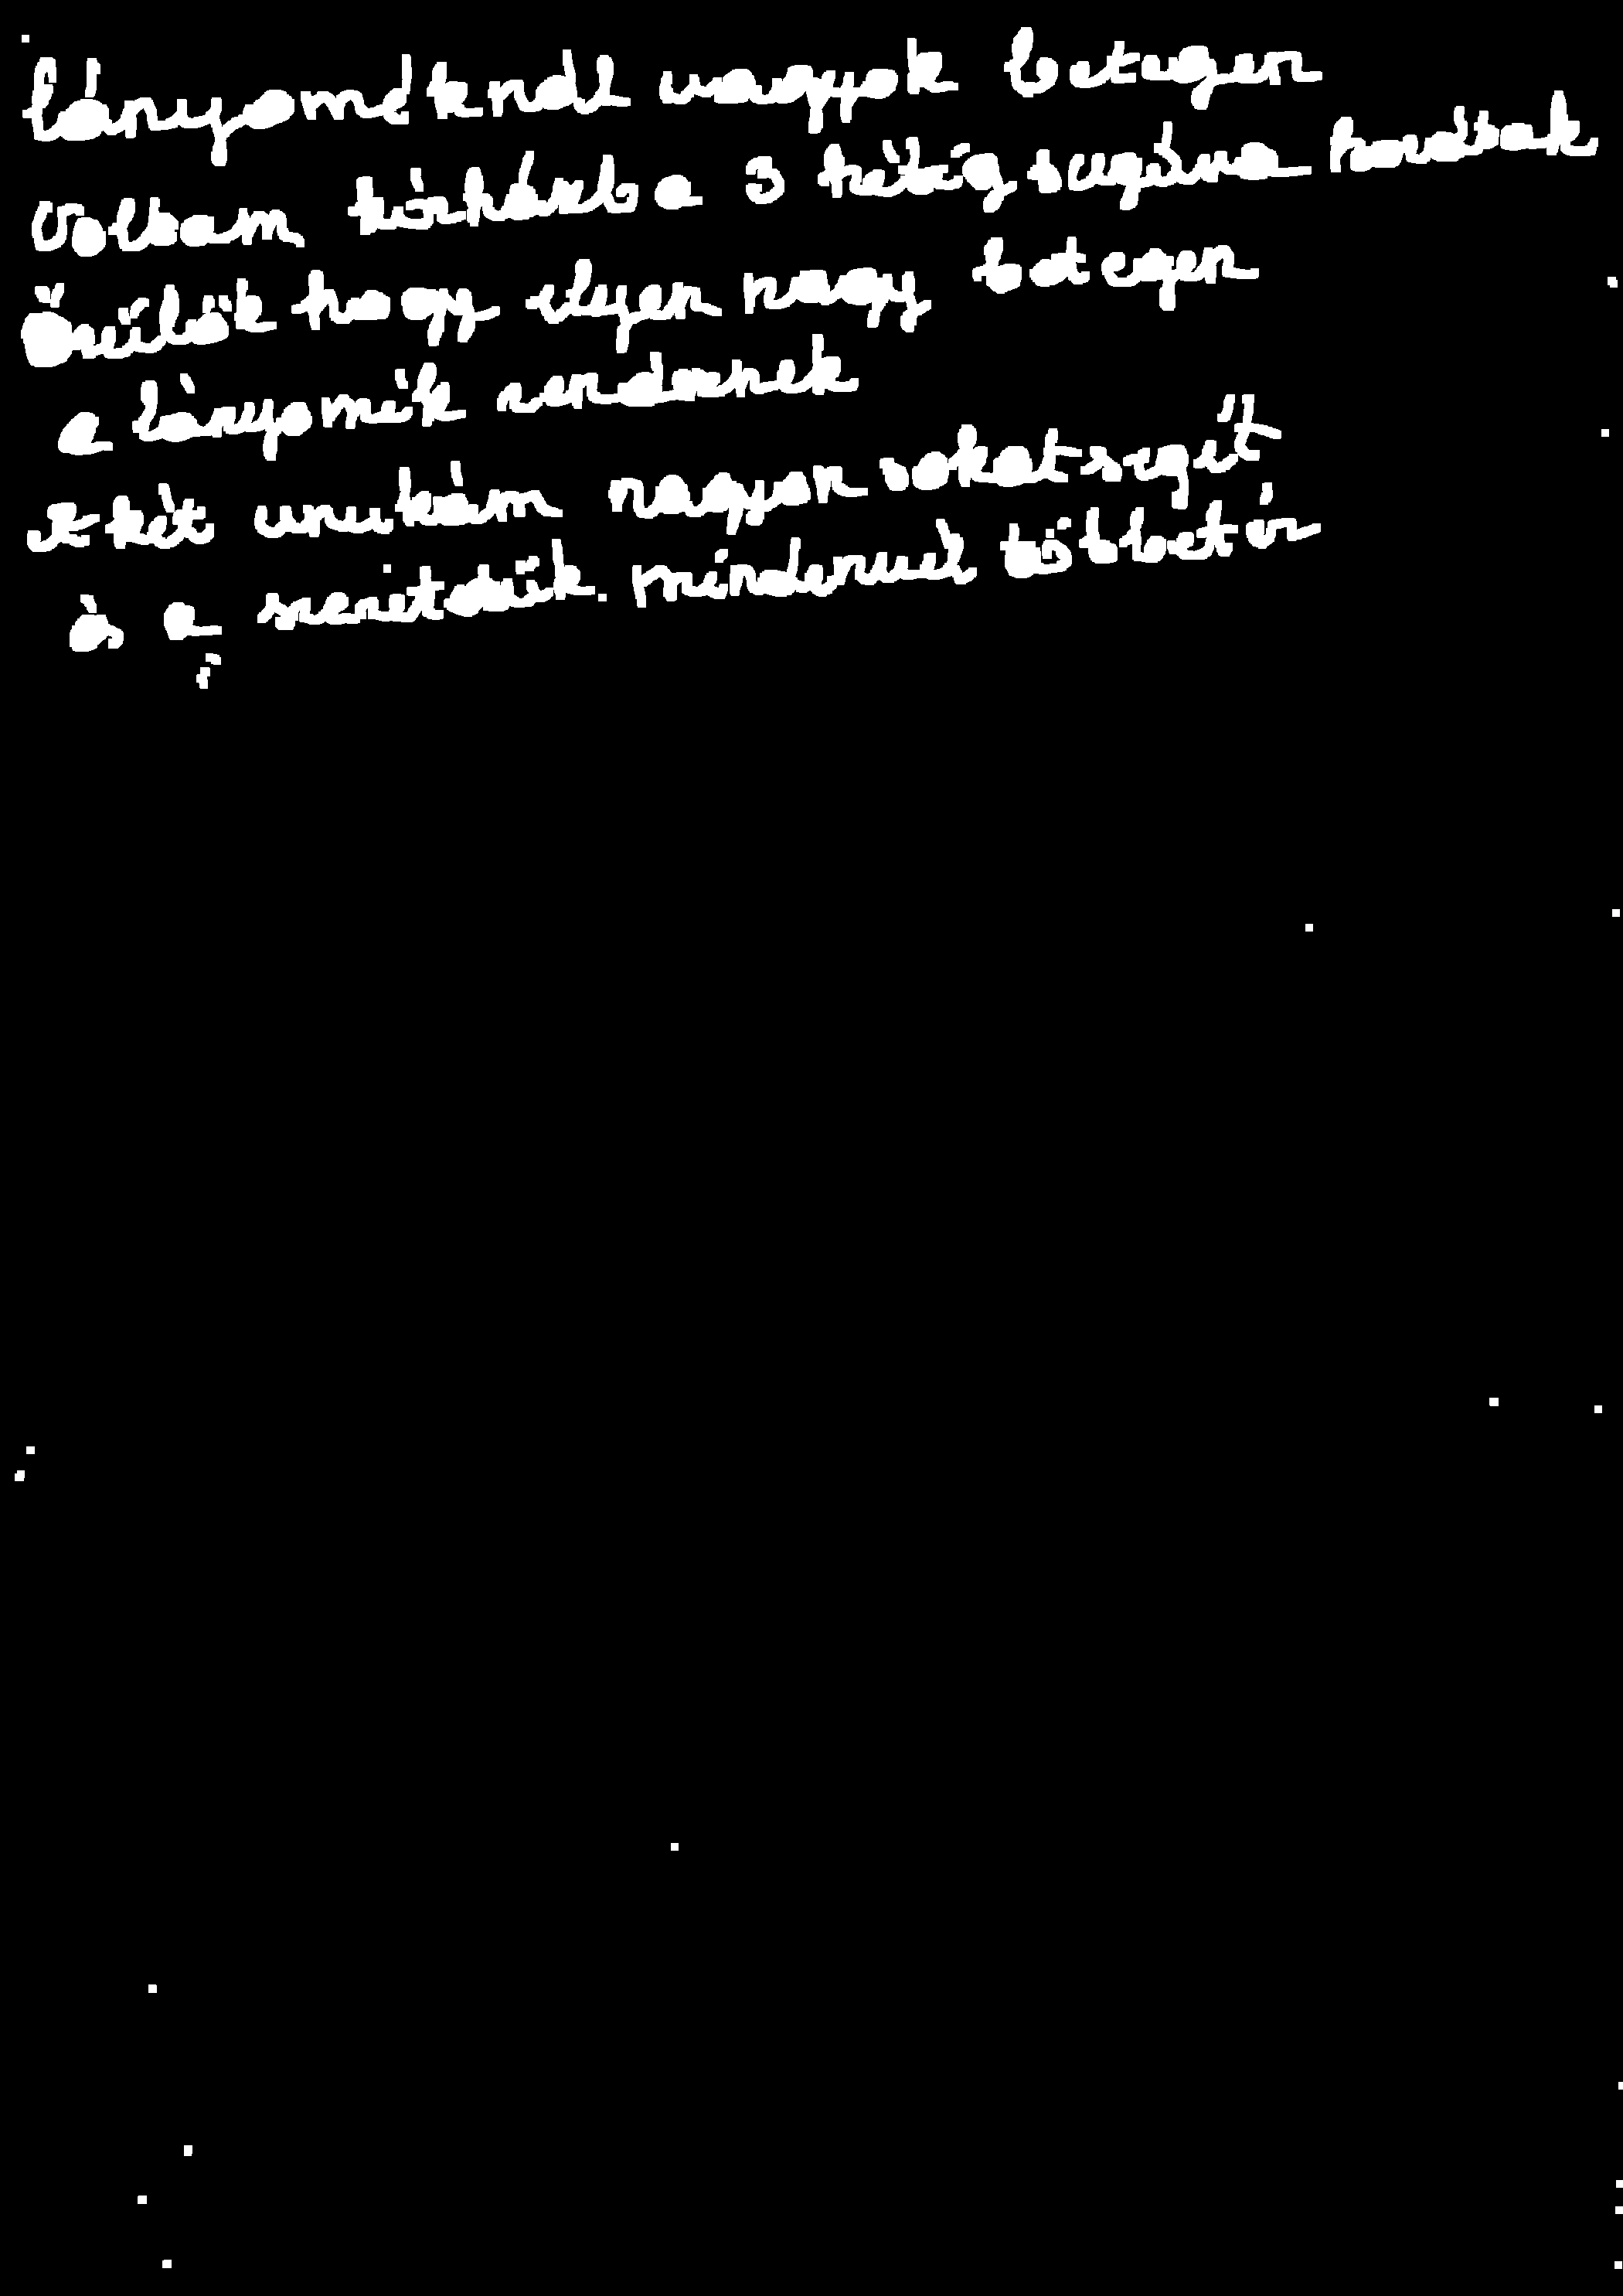 lányoméknál vagyok betegen
voltam kórházba 3 hétig sugárra hordtak
Örülök hogy ilyen nagy betegen
a lányomék rendesnek
a két unokám nagyon sokat segít
és a szeretetük mindennél többet ér